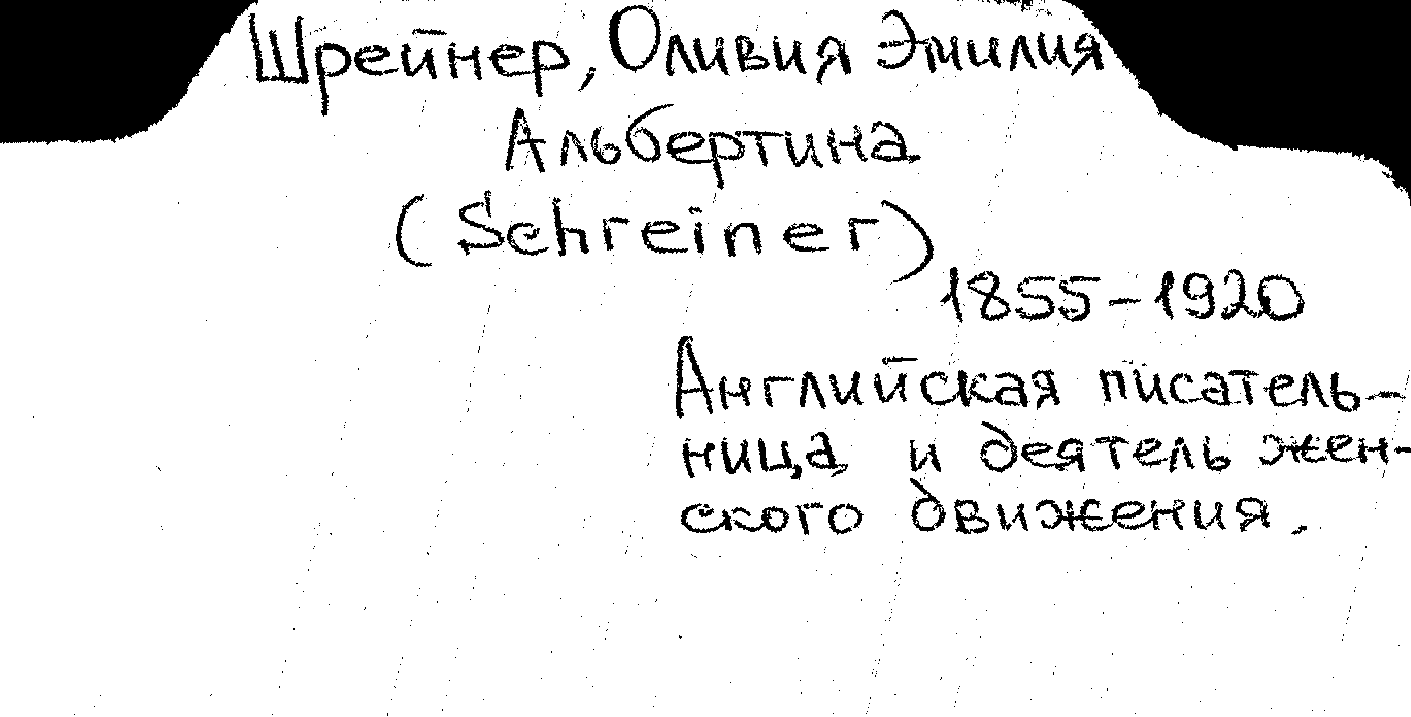 Шрейнер, Оливия Эмилия
Альбертина
(Schreiner)
1855-1920
Английская писатель-
ница и деятель жен-
ского движения.